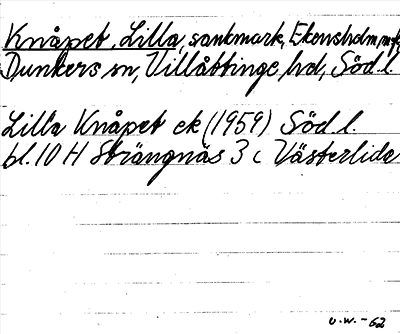 Knåpet, Lilla, sankmark, Ekensholm, mfl,
Dunkers sn, Villåttinge hd, Söd. l.
Lilla Knåpet ek (1959) Söd. l.
bl. 10 H Strängnäs 3 c Västerlida
U.W. -62